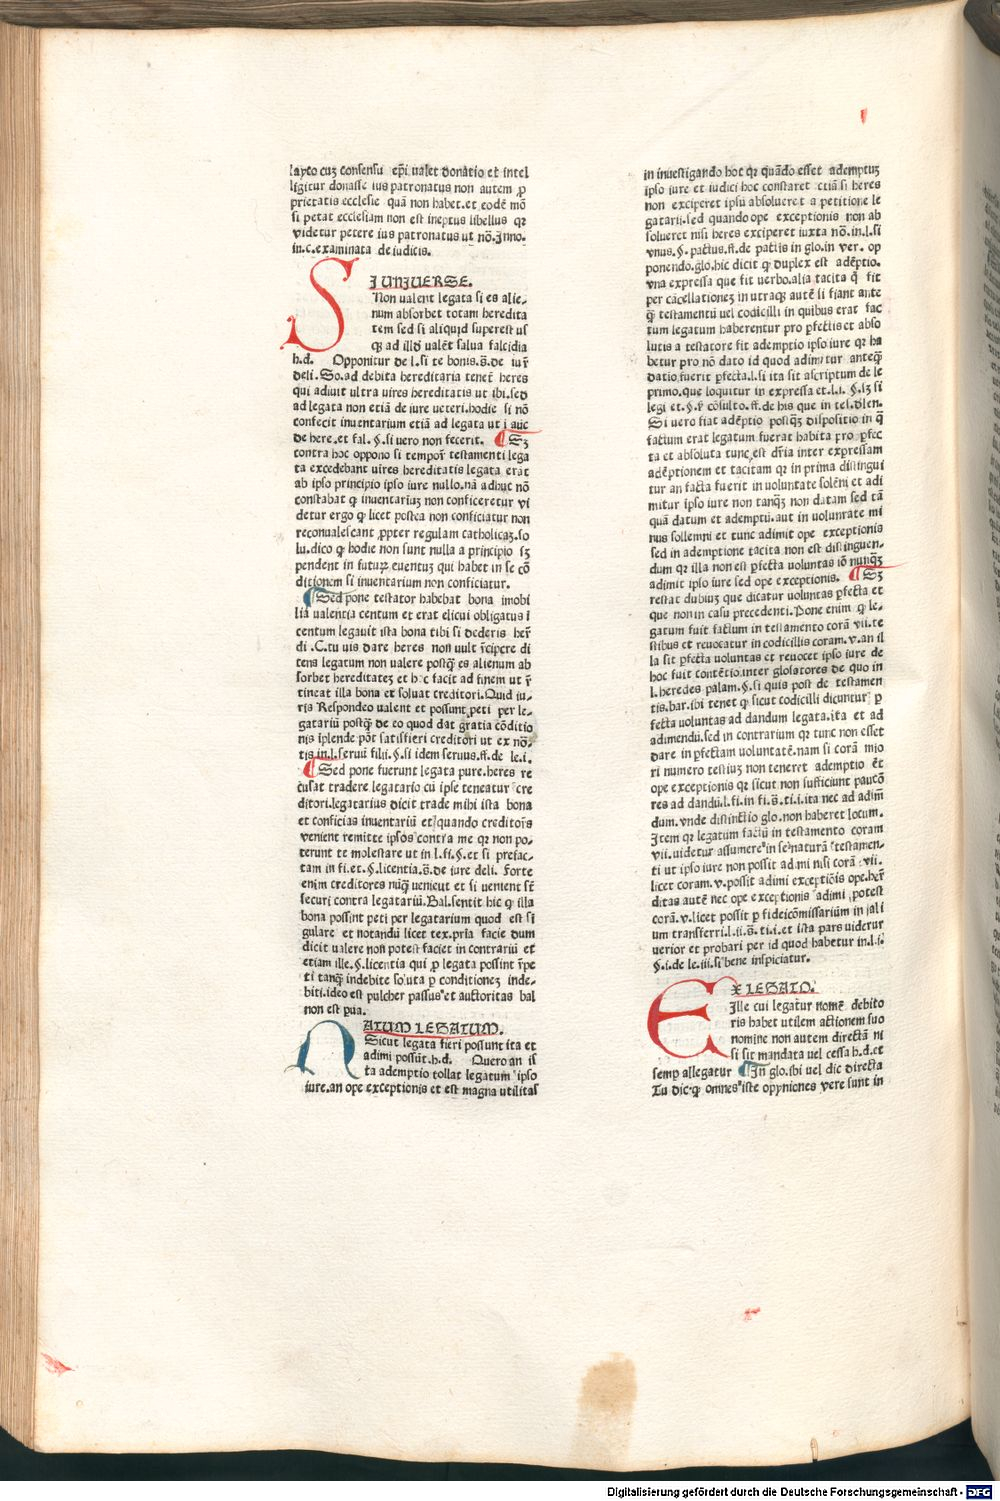 layco cuȝ consensu epĩ ualet donatio et intel
ligitur donasse ius patronatus non autem ꝓ
prietatis ecclesie quã non habet.et eodẽ mõ
si petat ecclesiam non est ineptus libellus qꝛ
videtur petere ius patronatus ut nõ.Inno.
in.c.examinata de iudiciis.
SI UNIUERSE.
Non ualent legata si es alie-
num absorbet totam heredita
tem sed si aliquid superest us
qȝ ad illđ ualẽt salua falcidia
h.d. Opponitur de l.si te bonis.s̄.de iur̃
deli.So.ad debita hereditaria tenet̃ heres
qui adiuit ultra uires hereditatis ut ibi.sed
ad legata non etiã de iure ueteri.hodie si nõ
confecit inuentarium etiã ad legata ut ĩ auc
de here.et fal.§.si uero non fecerit. ¶ Sȝ
contra hoc oppono si tempoꝛ̃ testamenti lega
ta excedebant uires hereditatis legata erãt
ab ipso principio ipso iure nullo.nã adhuc nõ
constabat ꝙ inuentariuȝ non conficeretur vi
detur ergo ꝙ licet postea non conficiatur non
reconualescant ꝓpter regulam catholicaȝ.so
lu.dico ꝙ hodie non sunt nulla a principio sȝ
pendent in futuꝝ euentuȝ qui habet in se cõ
ditionem si inuentarium non conficiatur.
¶ Sed pone testator habebat bona imobi
lia ualentia centum et erat elicui obligatus ĩ
centum legauit ista bona tibi si dederis her̃
di .C.tu uis dare heres non uult r̃cipere di
cens legatum non valere postqȝ es alienum ab
sorbet hereditateȝ et hoc facit ad finem ut r̃
tineat illa bona et soluat creditori.Quid iu-
ris Respondeo ualent et possunt peti per le-
gatariũ postqȝ de eo quod dat gratia cõditio
nis iplende põt satisfieri creditori ut ex nõ-
tis in.l.seruũ filii.§.si idem seruus.ff.de le.i.
¶ Sed pone fuerunt legata pure.heres re
cusat tradere legatario cũ ipse teneatur cre
ditori.legatarius dicit trade mihi ista bona
et conficias inuentariũ et quando creditor̃s
venient remitte ipsos contra me qꝛ non po-
terunt te molestare ut in l.fi.§.et si prefac-
tam in fi.et.§.licentia.s̄.de iure deli. Forte
enim creditores nũqȝ venieut et si uenient st̃
securi contra legatariũ.Bal.sentit hic ꝙ illa
bona possint peti per legatarium quod est si
gulare et notandũ licet tex.pria facie dum
dicit valere non potest faciet in contrariũ et
etiam ille.§.licentia qui ꝓ legata possint r̃pe
ti tanqȝ indebite soluta ꝑ conditioneȝ inde-
biti.ideo est pulcher passus et auctoritas bal
non est ꝑua.
NATUM LEGATUM.
Sicut legata fieri possunt ita et
adimi possũt.h.d. Quero an is
ta ademptio tollat legatum ipso
iure.an ope exceptionis et est magna utilitas
in inuestigando hoc qꝛ quãdo esset ademptuȝ
ipso iure et iudici hoc constaret etiã si heres
non exciperet ipsũ absolueret a petitione le
gatarii.sed quando ope exceptionis non ab
solueret nisi heres exciperet iuxta nõ.in.l.si
vnus.§.pactus.ff.de pactis in glo.in ver. op
ponendo.glo.hic dicit ꝙ duplex est adẽptio.
vna expressa que fit uerbo.alia tacita q̃ fit
per cãcellationeȝ in utraqȝ autẽ si fiant ante
qȝ testamentũ uel codicilli in quibus erat fac
tum legatum haberentur pro ꝑfectis et abso
lutis a testatore fit ademptio ipso iure qꝛ ha
betur pro nõ dato id quod adimitur anteqȝ
datio fuerit ꝑfecta.l.si ita sit ascriptum de le
primo.que loquitur in expressa et.l.i. §.iȝ si
legi et.§.ꝟ cõsulto.ff.de his que in tel.đlen.
Si uero fiat adẽptio postqȝ dispositio in q̃
factum erat legatum fuerat habita pro ꝑfec
ta et absoluta tunc est dr̃ia inter expressam
adẽptionem et tacitam qꝛ in prima distingui
tur an facta fuerit in voluntate solẽni et adi
mitur ipso iure non tanqȝ non datam sed tã
quã datum et ademptũ.aut in voluntate mi
nus sollemni et tunc adimit ope exceptionis
sed in ademptione tacita non est distinguen-
dum qꝛ illa non est ꝑfecta voluntas iõ nunqȝ
adimit ipso iure sed ope exceptionis. ¶ Sȝ
restat dubiuȝ que dicatur voluntas ꝑfecta et
que non in casu precedenti.Pone enim ꝙ le-
gatum fuit factum in testamento corã vii.te
stibus et reuocatur in codicillis coram.v.an il
la sit ꝑfecta voluntas et reuocet ipso iure de
hoc fuit contẽtio inter glosatores de quo in
l.heredes palam.§.si quis post de testamen
tis.bar.ibi tenet ꝙ sicut codicilli dicuntur ꝑ
fecta voluntas ad dandum legata.ita et ad
adimendũ.sed in contrarium qꝛ tunc non esset
dare in ꝑfectam voluntatẽ.nam si corã mio
ri numero testiuȝ non teneret ademptio ẽt
ope exceptionis qꝛ sicut non sufficiunt paucõ
res ad dandũ.l.fi.in fi.s̄.ti.i.ita nec ad adim̃
dum.vnde distinctio glo.non haberet locum.
Item qꝛ legatum factũ in testamento coram
vii.uidetur assumere in se naturã testamen-
ti ut ipso iure non possit adimi nisi corã .vii.
licet coram.v.possit adimi exceptiõis ope.her̃
ditas autẽ nec ope exceptionis adimi potest
corã.v.licet possit ꝑ fideicõmissarium in ali
um transferri.l.ii.s̄.ti.i.et ista pars uidetur
uerior et probari per id quod habetur in.l.i.
§.i.de le.iii.si bene inspiciatur.
EX LEGATO.
Ille cui legatur nomẽ debito
ris habet utilem actionem suo
nomine non autem directã ni
si sit mandata uel cessa h.d.et
semꝑ allegatur ¶ In glo.ibi uel dic directa
Tu dic ꝙ omnes iste opyniones vere sunt in
Digitalisierung gefördert durch die Deutsche Forschungsgemeinschaft - DFG